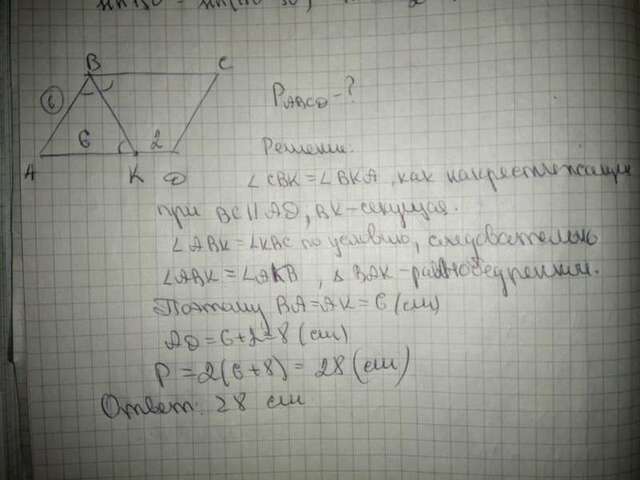 B
C
6
6
2
A
K
D
P ABCD - ?
Решение.
∠CBK = ∠BKA, как накрест лежащие
при BC || AD, BK - секущая.
∠ABK = ∠KBC по условию, следовательно
∠ABK = ∠AKB, Δ BAK - равнобедренный.
Поэтому BA = AK = 6 (см)
AD = 6 + 2 = 8 (см)
P = 2(6 + 8) = 28 (см)
Ответ: 28 см